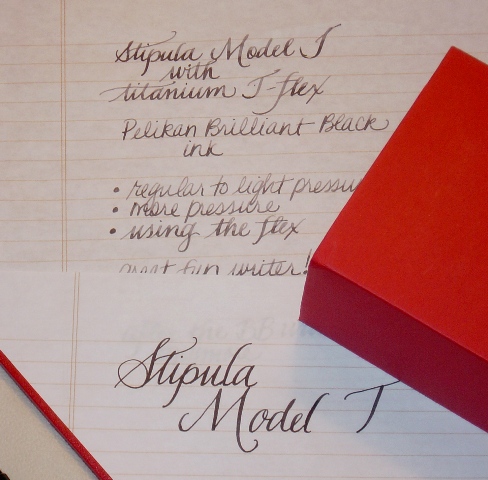 Stipula Model T
with
titanium T-flex
Pelikan Brilliant Black
ink
• regular to light pressu
• more pressure
• using the flex
great fun writer!
Stipula
Model T